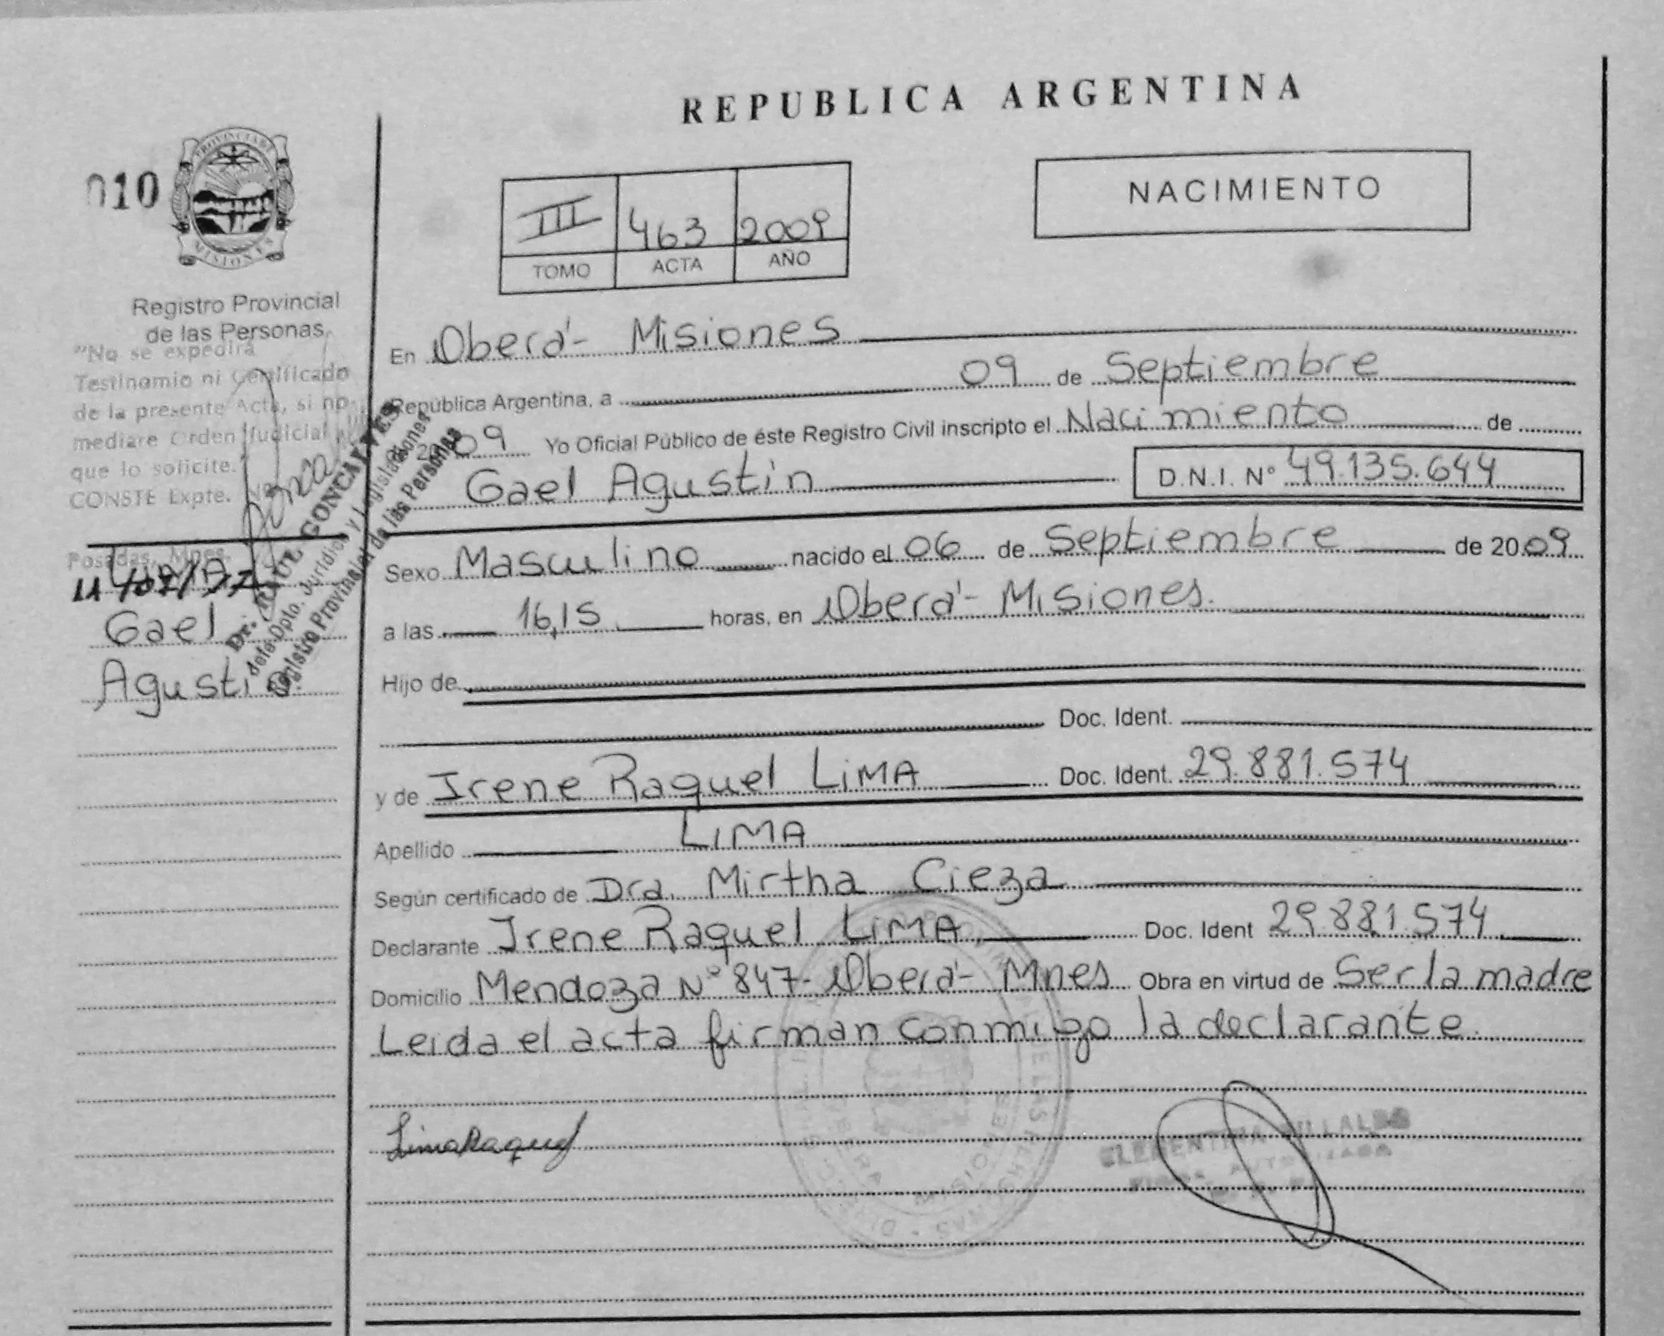 REPUBLICA ARGENTINA
010
PROVINCIA DE
MISIONES
Registro Provincial
de las Personas
"No se expedirá
Testimonio ni Certificado
de la presente Acta, si no
mediare Orden Judicial
que lo solicite.
CONSTE Expte. Nº
Posadas, Mnes.
LIMA
Gael
Agustin
Dr. RAUL GONCALVES
Jefe Dpto. Jurídico y Legislaciones
Registro Provincial de las Personas
III 463 2009
TOMO ACTA AÑO
NACIMIENTO
En Oberá - Misiones
República Argentina, a 09 de Septiembre
de 2009 Yo Oficial Público de éste Registro Civil inscripto el Nacimiento de
Gael Agustin D.N.I. Nº 49.135.644
Sexo Masculino nacido el 06 de Septiembre de 2009
a las 16,15 horas, en Oberá - Misiones.
Hijo de
Doc. Ident.
y de Irene Raquel LIMA Doc. Ident. 29.881.574
Apellido LIMA
Según certificado de Dra. Mirtha Cieza
Declarante Irene Raquel LIMA, Doc. Ident 29.881.574
Domicilio Mendoza Nº 847- Oberá- Mnes Obra en virtud de Ser la madre
Leida el acta firman conmigo la declarante.
Lima Raquel